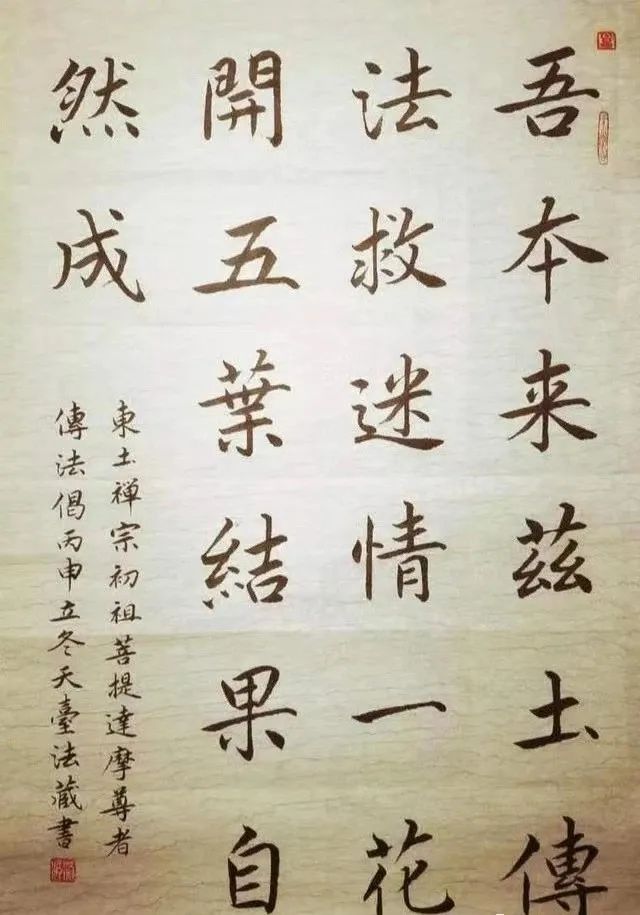 吾本来茲土傳
法救迷情一花
開五葉結果自
然成
東土禅宗初祖菩提達摩尊者
傳法偈丙申立冬天臺法藏書